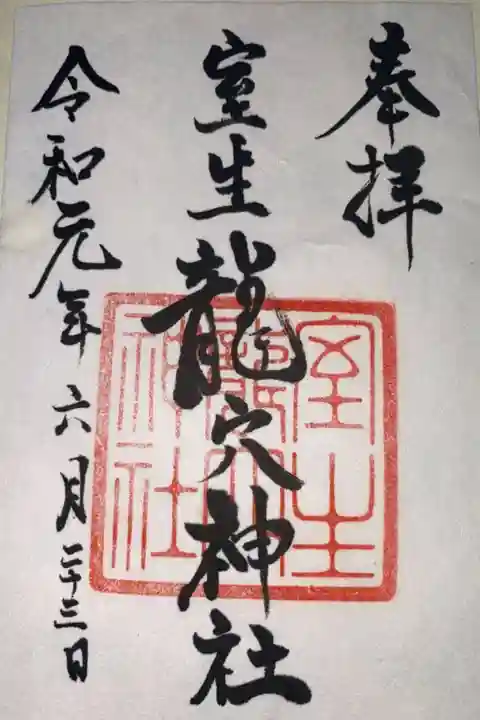 奉拝
室生龍穴神社
令和元年六月二十三日
室生
龍穴
神社